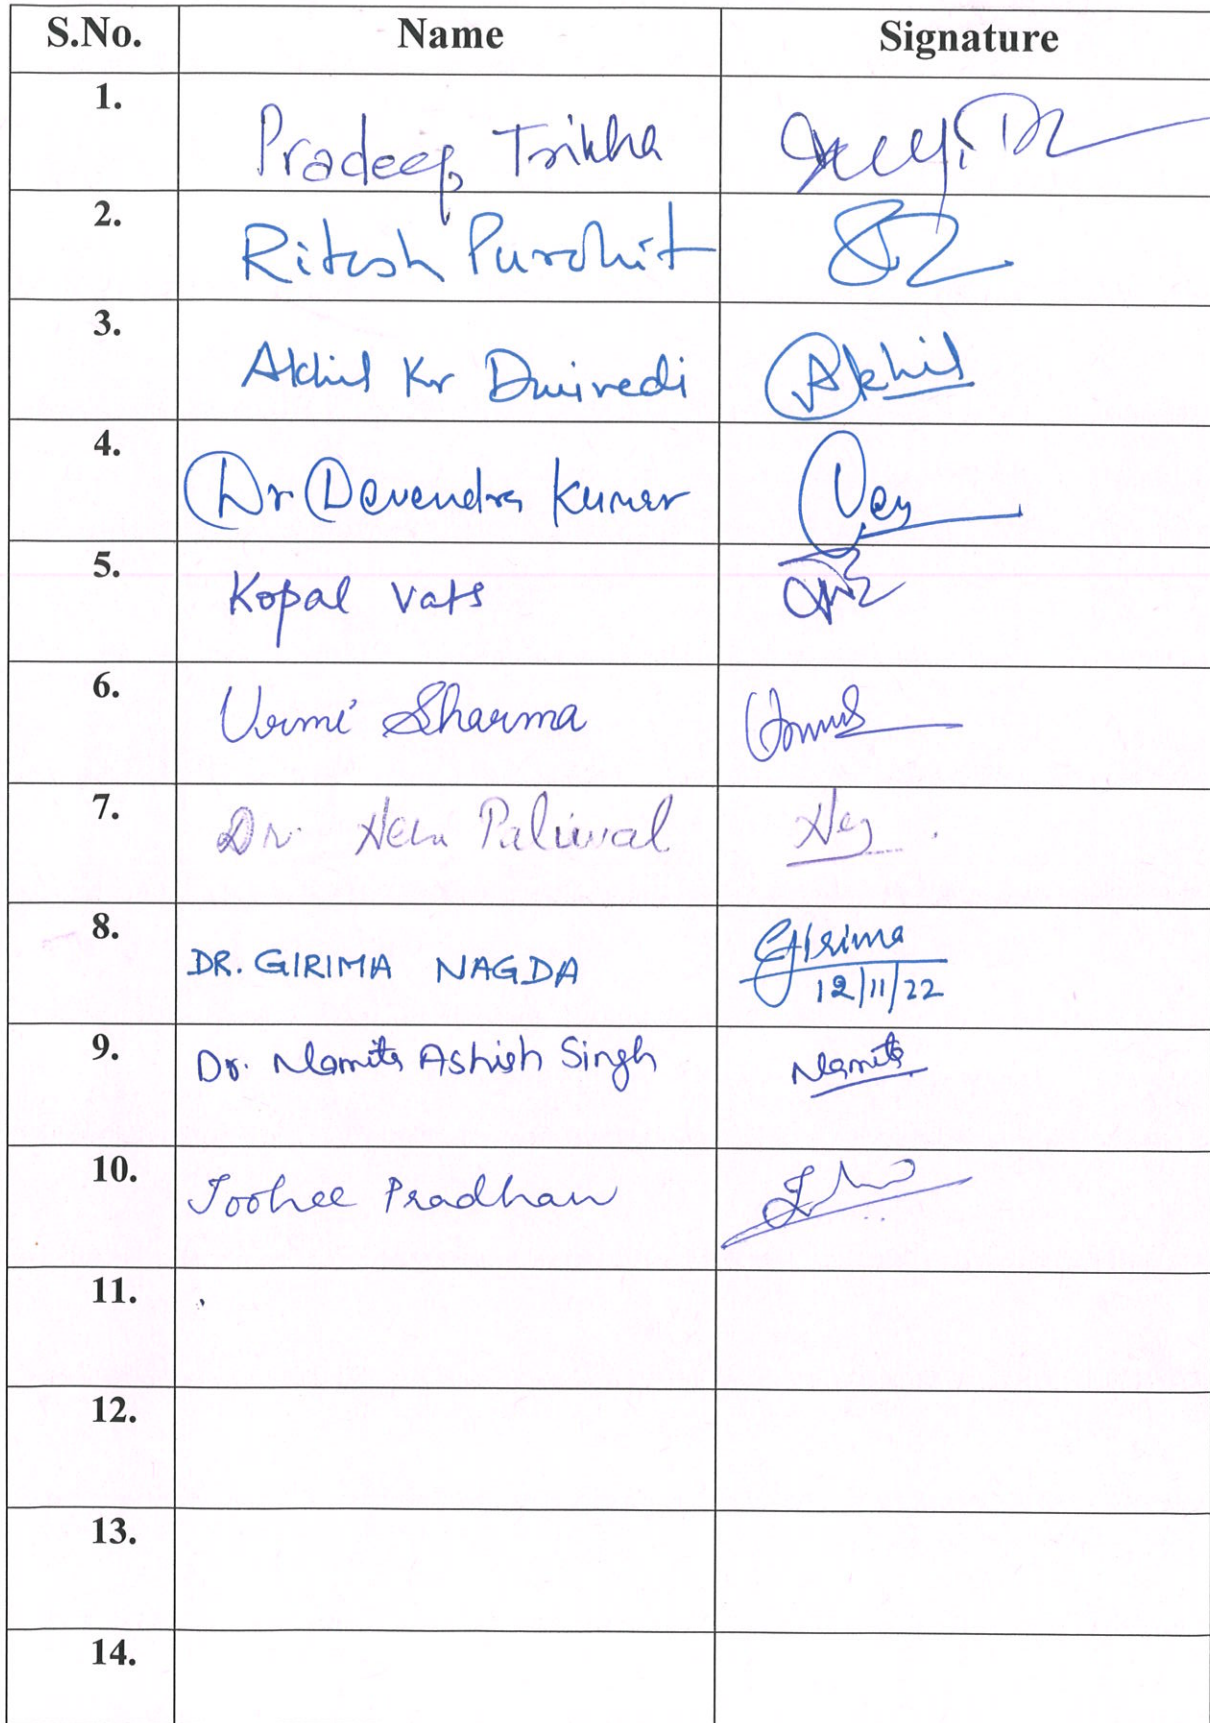 S.No. Name Signature
1. Pradeep Trikha
2. Ritesh Purohit
3. Akhil Kr Dwivedi Akhil
4. Dr Devendra Kumar
5. Kopal Vats
6. Urmi Sharma
7. Dr. Paliwal
8. DR. GIRIMA NAGDA Girima
12/11/22
9. Dr. Namita Ashish Singh Namita
10. Joohee Pradhan
11.
12.
13.
14.